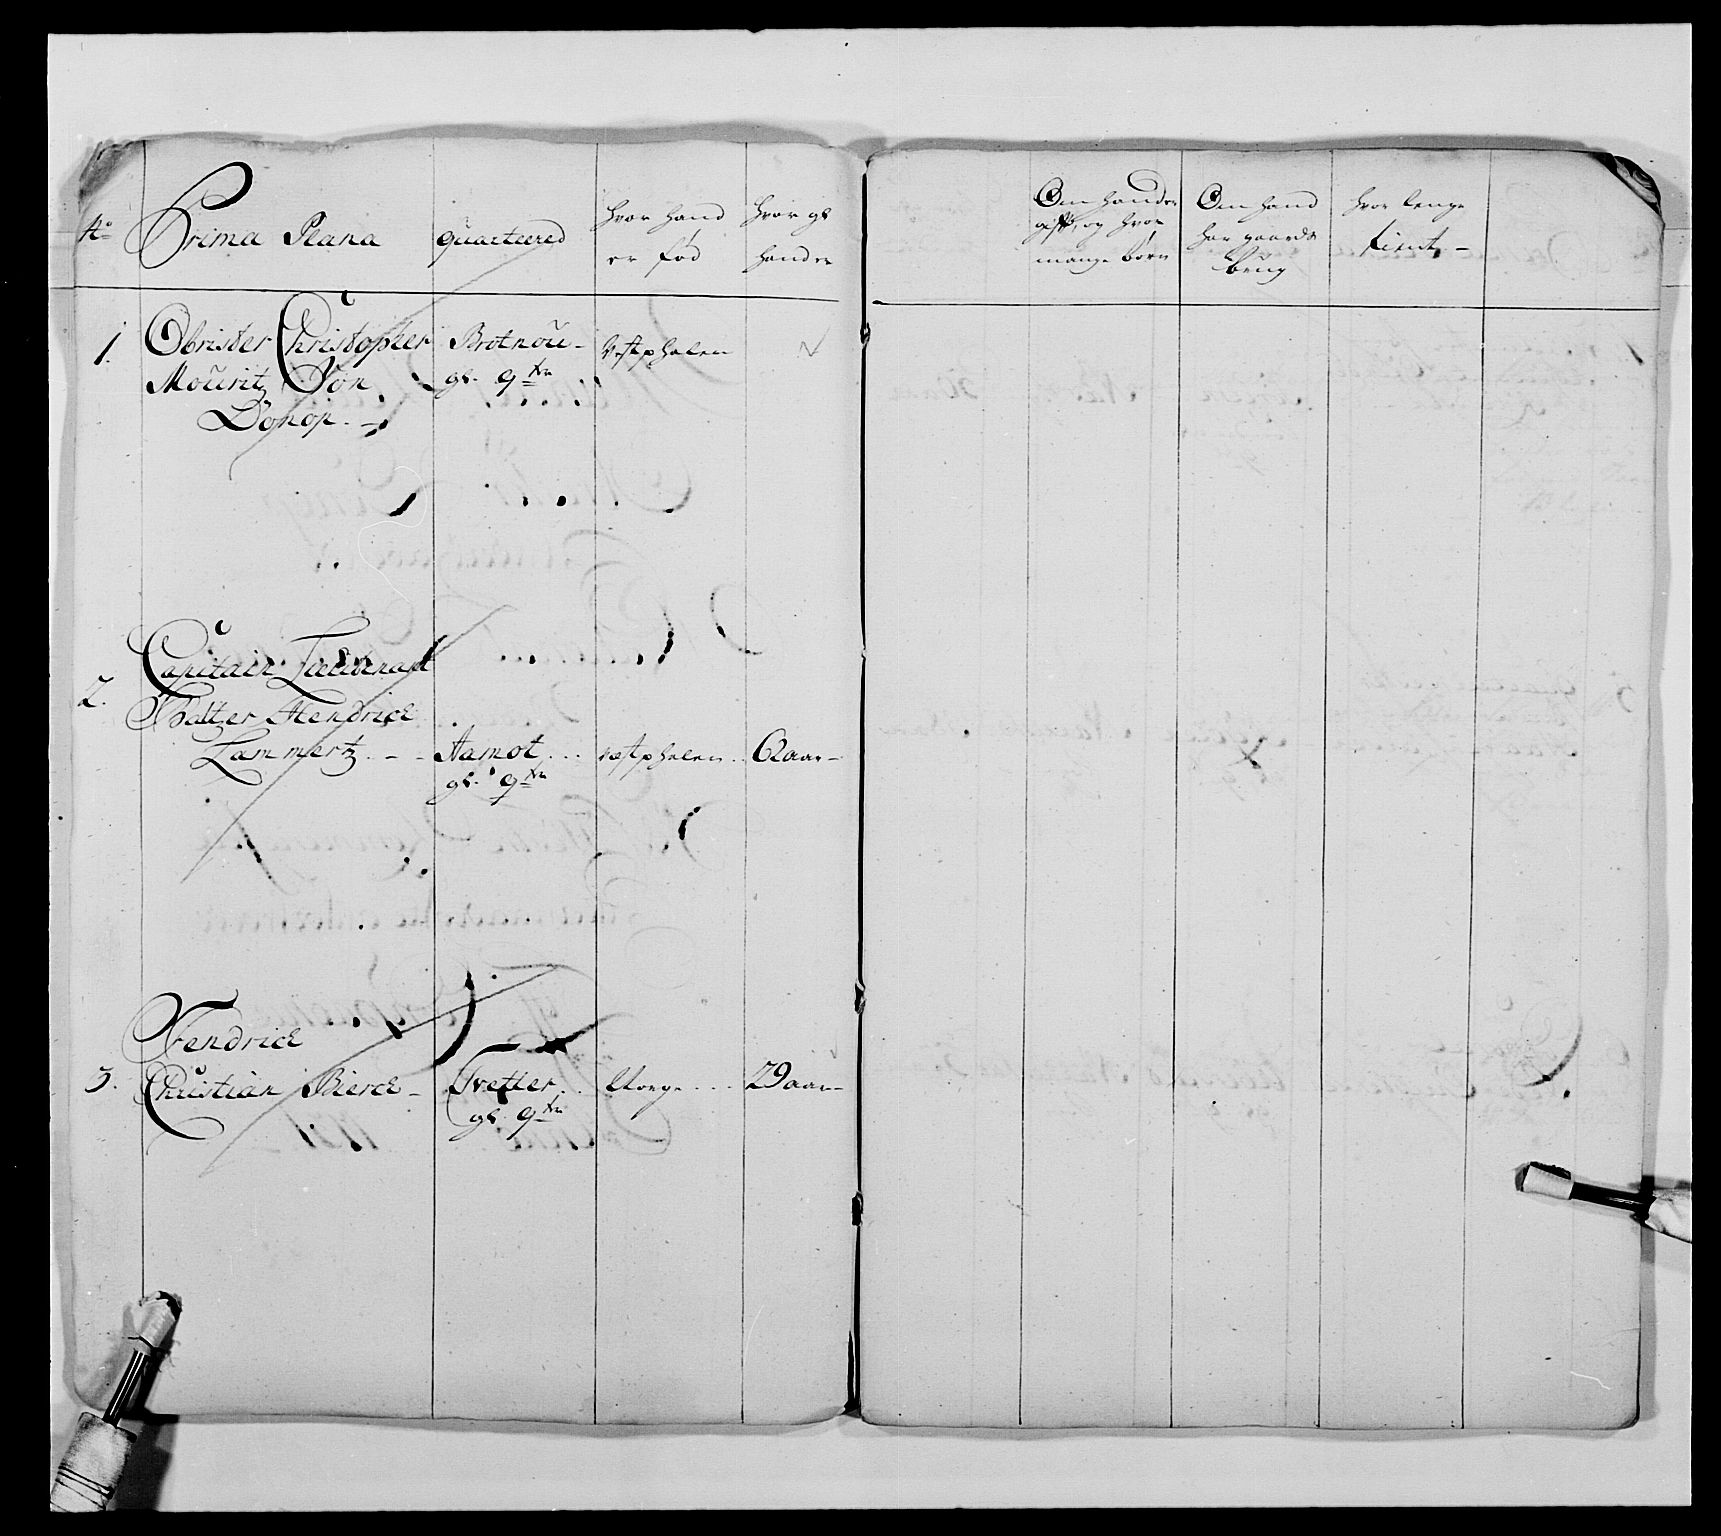 No Prima Plana quarteered hvor hand er fød hvor gl handr
Om hander gift, og hvor mange børn
Om hand har gaards brug
hvor lenge tient
1. Obrister Christopher Mouritz Von Donop. Brotnou gl. qtr Vestphalen
2. Capitain Lieutenant Baltzer Hendrick Lammertz. Aamot gl. qtr vestphalen 62 aar
3. Fendrick Christian Bierck Tretter gl. qtr Norge 29 aar